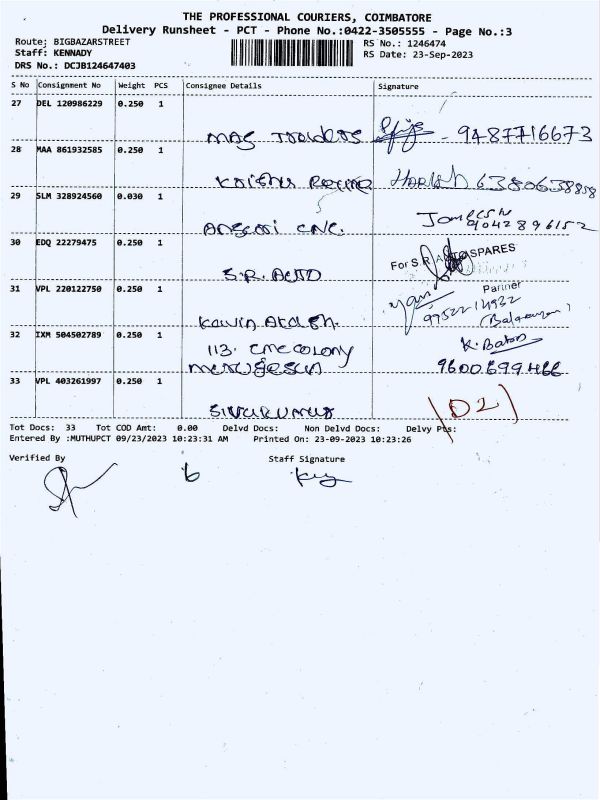 THE PROFESSIONAL COURIERS, COIMBATORE
Delivery Runsheet - PCT - Phone No.:0422-3505555 - Page No.:3
Route: BIGBAZARSTREET
Staff: KENNADY
DRS No.: DCJB124647403
RS No.: 1246474
RS Date: 23-Sep-2023
S No Consignment No Weight PCS Consignee Details Signature
27 DEL 120986229 0.250 1
MAS - 9487716673
28 MAA 861932585 0.250 1
Harish 6380638858
29 SLM 328924560 0.030 1
9042896152
30 EDQ 22279475 0.250 1
For S.R. AUTOSPARES
S.R. AUTO
31 VPL 220122750 0.250 1
Partner
99522-14932
Kavin
32 IXM 504502789 0.250 1
113. COLONY
K. Baton
9600699466
33 VPL 403261997 0.250 1
Sivakumar
(D2)
Tot Docs: 33 Tot COD Amt: 0.00 Delvd Docs: Non Delvd Docs: Delvy Pts:
Entered By :MUTHUPCT 09/23/2023 10:23:31 AM Printed On: 23-09-2023 10:23:26
Verified By Staff Signature